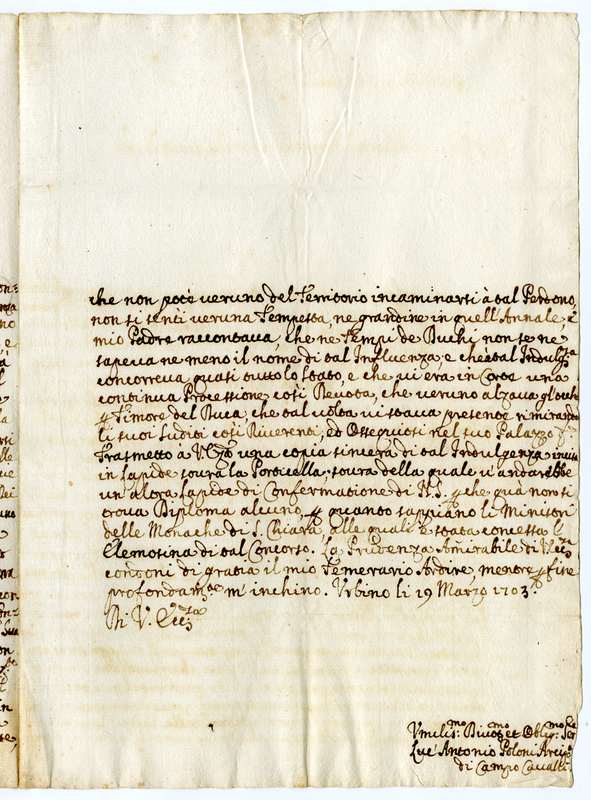 che non potè veruno del Territorio incaminarsi à tal Perdono,
non si sentì veruna Tempesta, ne grandine in quell'Annale; e
mio Padre raccontava, che ne Tempi de Duchi non se ne
sapeva ne meno il nome di tal Influenza, e che à tal Indulg.za
concorreva quasi tutto lo Stato, e che vi era in Corte una
continua Processione così Devota, che veruno alzava gl'occhi
p Timore del Duca, che tal volta vi stava presente rimirando
li suoi Suditi così Riverenti, ed Ossequiosi nel suo Palazzo
Trasmetto à V. una copia sincera di tal Indulgenza incisa
in lapide sovra la Porticella; sovra della quale v'andarebbe
un altra lapide di Confermatione di N.S. p che quà non si
trova Diploma alcuno, p quanto sappiano li Ministri
delle Monache di S. Chiara, alle quali è stata concessa l'
Elemosina di tal Concorso. La Prudenza Amirabile di V. Ecc.za
condoni di gratia il mio Temerario Ardire, mentre p fine
profondam.te m'inchino. Urbino li 19 Marzo 1703.
Di V. Ecc.za
Umiliss.mo Divot.mo et Oblig.mo Ser.re
Antonio Poloni Arcip.e
di Campo Cavalli